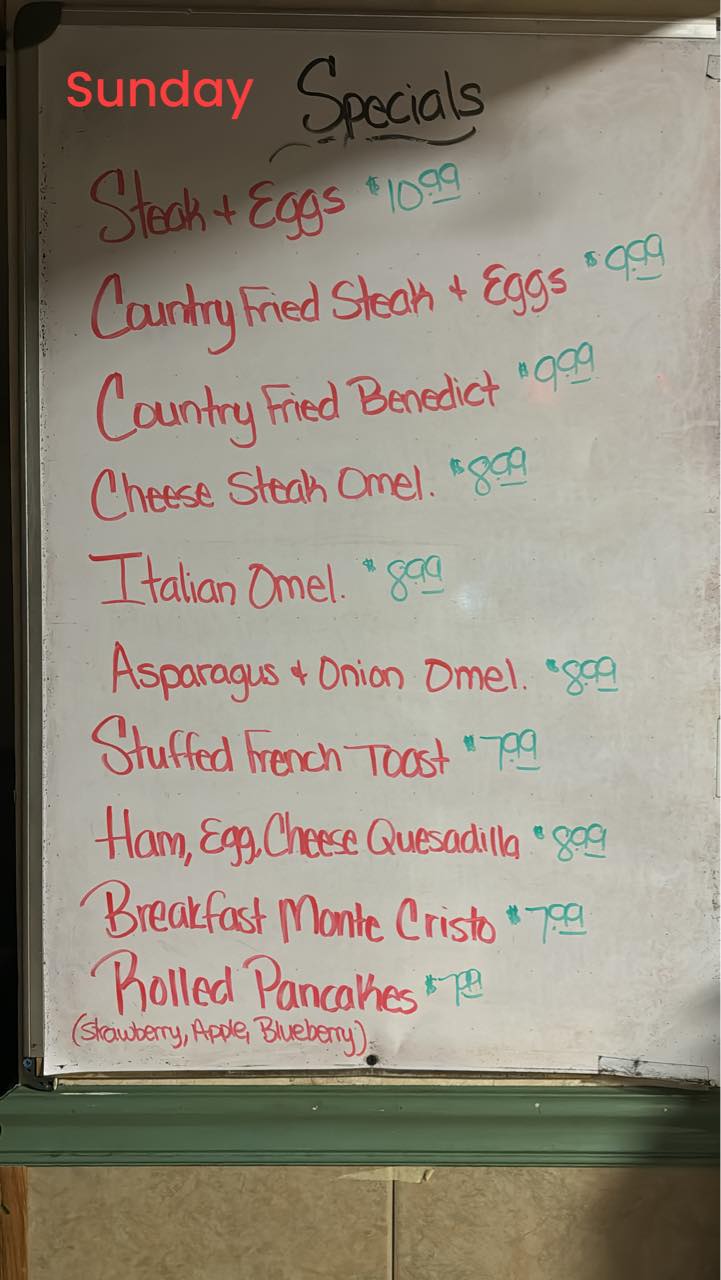 Sunday Specials
Steak + Eggs $10.99
Country Fried Steak + Eggs $9.99
Country Fried Benedict $9.99
Cheese Steak Omel. $8.99
Italian Omel. $8.99
Asparagus + Onion Omel. $8.99
Stuffed French Toast $7.99
Ham, Egg, Cheese Quesadilla $8.99
Breakfast Monte Cristo $7.99
Rolled Pancakes $7.99
(Strawberry, Apple, Blueberry)